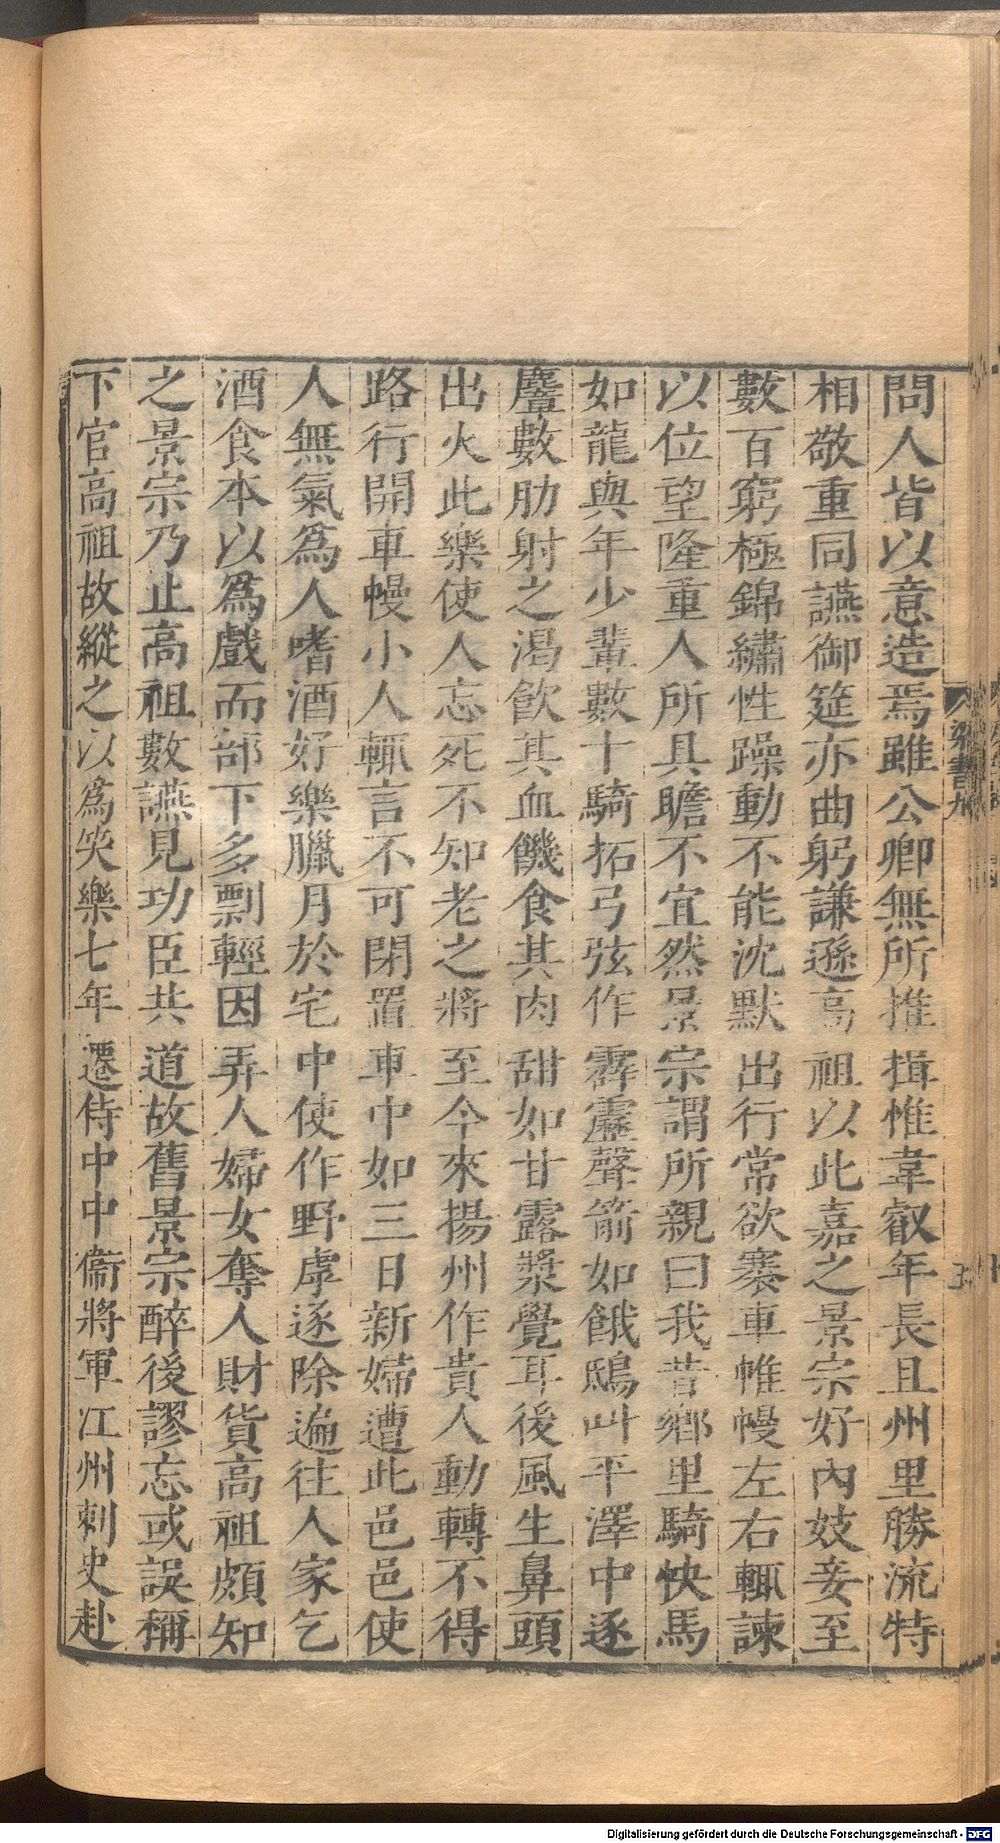 問人皆以意造焉雖公卿無所推揖惟韋叡年長且州里勝流特
相敬重同讌御筵亦曲躬謙遜高祖以此嘉之景宗好內妓妾至
數百窮極錦繡性躁動不能沈默出行常欲褰車帷幔左右輒諫
以位望隆重人所具瞻不宜然景宗謂所親曰我昔鄉里騎快馬
如龍與年少輩數十騎拓弓弦作霹靂聲箭如餓鴟叫平澤中逐
麞數肋射之渴飲其血饑食其肉甜如甘露漿覺耳後風生鼻頭
出火此樂使人忘死不知老之將至今來揚州作貴人動轉不得
路行開車幔小人輒言不可閉置車中如三日新婦遭此邑邑使
人無氣爲人嗜酒好樂臘月於宅中使作野虖逐除遍往人家乞
酒食本以爲戲而部下多剽輕因弄人婦女奪人財貨高祖頗知
之景宗乃止高祖數讌見功臣共道故舊景宗醉後謬忘或誤稱
下官高祖故縱之以爲笑樂七年遷侍中中衞將軍江州刺史赴
梁書九
Digitalisierung gefördert durch die Deutsche Forschungsgemeinschaft - DFG